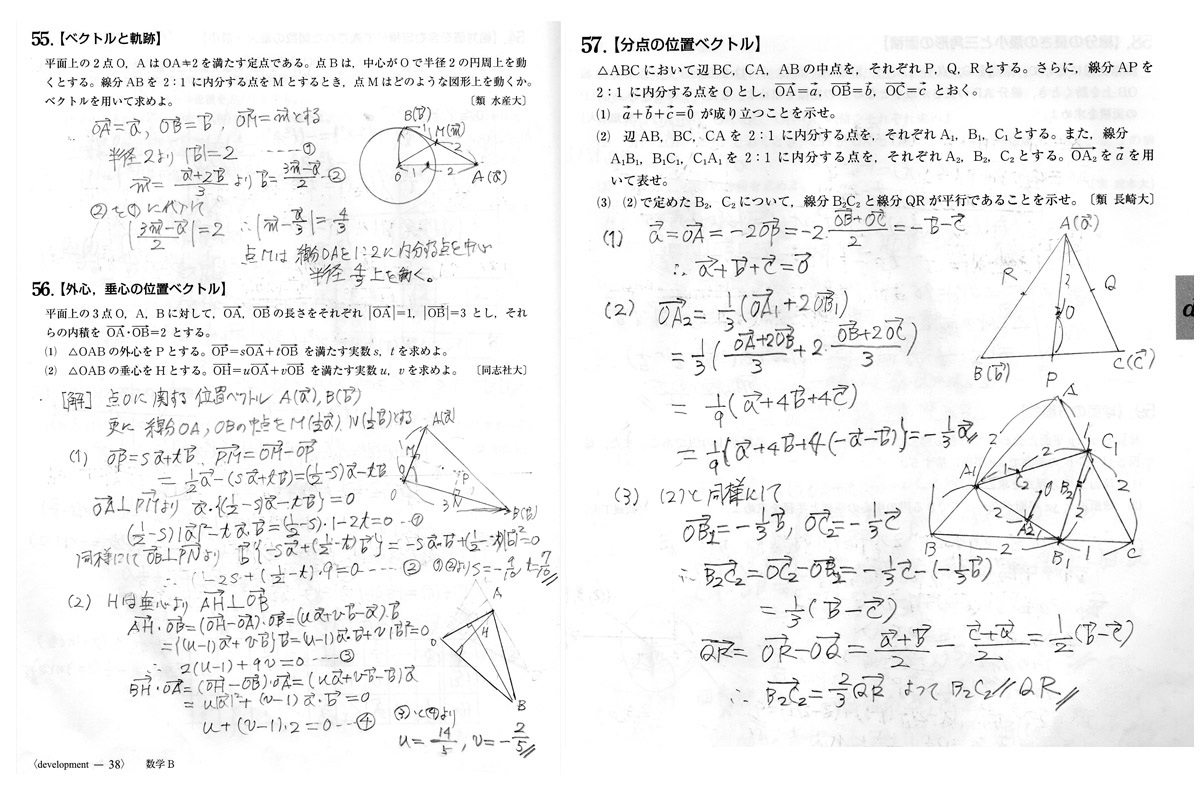 55.【ベクトルと軌跡】
平面上の2点O, AはOA=2を満たす定点である。点Bは, 中心がOで半径2の円周上を動
くとする。線分ABを2:1に内分する点をMとするとき, 点Mはどのような図形上を動くか。
ベクトルを用いて求めよ。 〔類 水産大〕
OA→=a→, OB→=b→, OM→=m→とする
半径2より |b→|=2 ……①
m→=(a→+2b→)/3 より b→=(3m→-a→)/2 …②
②を①に代入して
|(3m→-a→)/2|=2 ∴|m→-a→/3|=4/3
点Mは 線分OAを1:2に内分する点を中心
半径 4/3 上を動く。
B(b→)
M(m→)
O 1 2 A(a→)
56.【外心, 垂心の位置ベクトル】
平面上の3点O, A, Bに対して, OA→, OB→の長さをそれぞれ|OA→|=1, |OB→|=3とし, それ
らの内積をOA→・OB→=2とする。
⑴ △OABの外心をPとする。OP→=sOA→+tOB→ を満たす実数s, tを求めよ。
⑵ △OABの垂心をHとする。OH→=uOA→+vOB→ を満たす実数u, vを求めよ。 〔同志社大〕
[解] 点Oに関する 位置ベクトル A(a→), B(b→)
更に 線分OA, OBの中点を M(½a→), N(½b→)とする
(1) OP→=sa→+tb→, PM→=OM→-OP→
=½a→-(sa→+tb→)=(½-s)a→-tb→
OA→⊥PM→より a→・{(½-s)a→-tb→}=0
(½-s)|a→|²-ta→・b→=(½-s)・1-2t=0 …①
同様にして OB→⊥PN→より b→{-sa→+(½-t)b→}=-sa→・b→+(½-t)|b→|²=0
∴ (-2s+(½-t)・9=0 …… ② ①②よりs=-9/10, t=7/10
A(a→)
M
P
O
3 N
B(b→)
(2) Hは垂心より AH→⊥OB→
AH→・OB→=(OH→-OA→)・OB→=(ua→+vb→-a→)・b→
={(u-1)a→+vb→}b→=(u-1)a→・b→+v|b→|²=0
∴ 2(u-1)+9v=0 …③
BH→・OA→=(OH→-OB→)・OA→=(ua→+vb→-b→)a→
=u|a→|²+(v-1)a→・b→=0
u+(v-1)・2=0…④
③と④より
u=14/5, v=-2/5
A
O
H
B
〈development ー 38〉 数学B
57.【分点の位置ベクトル】
△ABCにおいて辺BC, CA, ABの中点を, それぞれP, Q, Rとする。さらに, 線分APを
2:1に内分する点をOとし, OA→=a→, OB→=b→, OC→=c→ とおく。
⑴ a→+b→+c→=0→ が成り立つことを示せ。
⑵ 辺AB, BC, CAを2:1に内分する点を, それぞれA₁, B₁, C₁とする。また, 線分
A₁B₁, B₁C₁, C₁A₁を2:1に内分する点を, それぞれA₂, B₂, C₂とする。OA₂→をa→を用
いて表せ。
⑶ ⑵で定めたB₂, C₂について, 線分B₂C₂と線分QRが平行であることを示せ。〔類 長崎大〕
(1) a→=OA→=-2OP→=-2・(OB→+OC→)/2=-b→-c→
∴ a→+b→+c→=0→
A(a→)
R
2
Q
O
B(b→)
P
C(c→)
(2) OA₂→=⅓(OA₁→+2OB₁→)
=⅓((OA→+2OB→)/3+2・(OB→+2OC→)/3)
=1/9(a→+4b→+4c→)
=1/9{a→+4b→+4(-a→-b→)}=-⅓a→
(3) (2)と同様にして
OB₂→=-⅓b→, OC₂→=-⅓c→
∴ B₂C₂→=OC₂→-OB₂→=-⅓c→-(-⅓b→)
=⅓(b→-c→)
QR→=OR→-OQ→=(a→+b→)/2-(c→+a→)/2=½(b→-c→)
∴ B₂C₂→=⅔QR→ よって B₂C₂∥QR
A
2 1
A₁ 1 2 C₁
C₂
O B₂
1 2 A₂ 2 2
1
B 2 B₁ 1 C
d